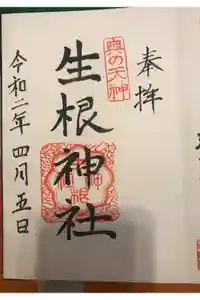 奉拝
奥の天神
生根神社
令和二年四月五日